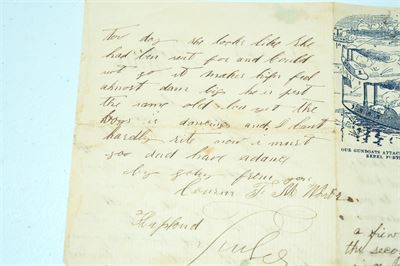 Too day she looks like she
had ben sent for and could
not go it makes him feel
almost dam big he is just
the same old boy yet the
boys is dancing and I cant
hardly rite now i must
goo and have a dance
by goly from you
Cousin T. M.
OUR GUNBOATS ATTAC
REBEL FORT
a few
the seco